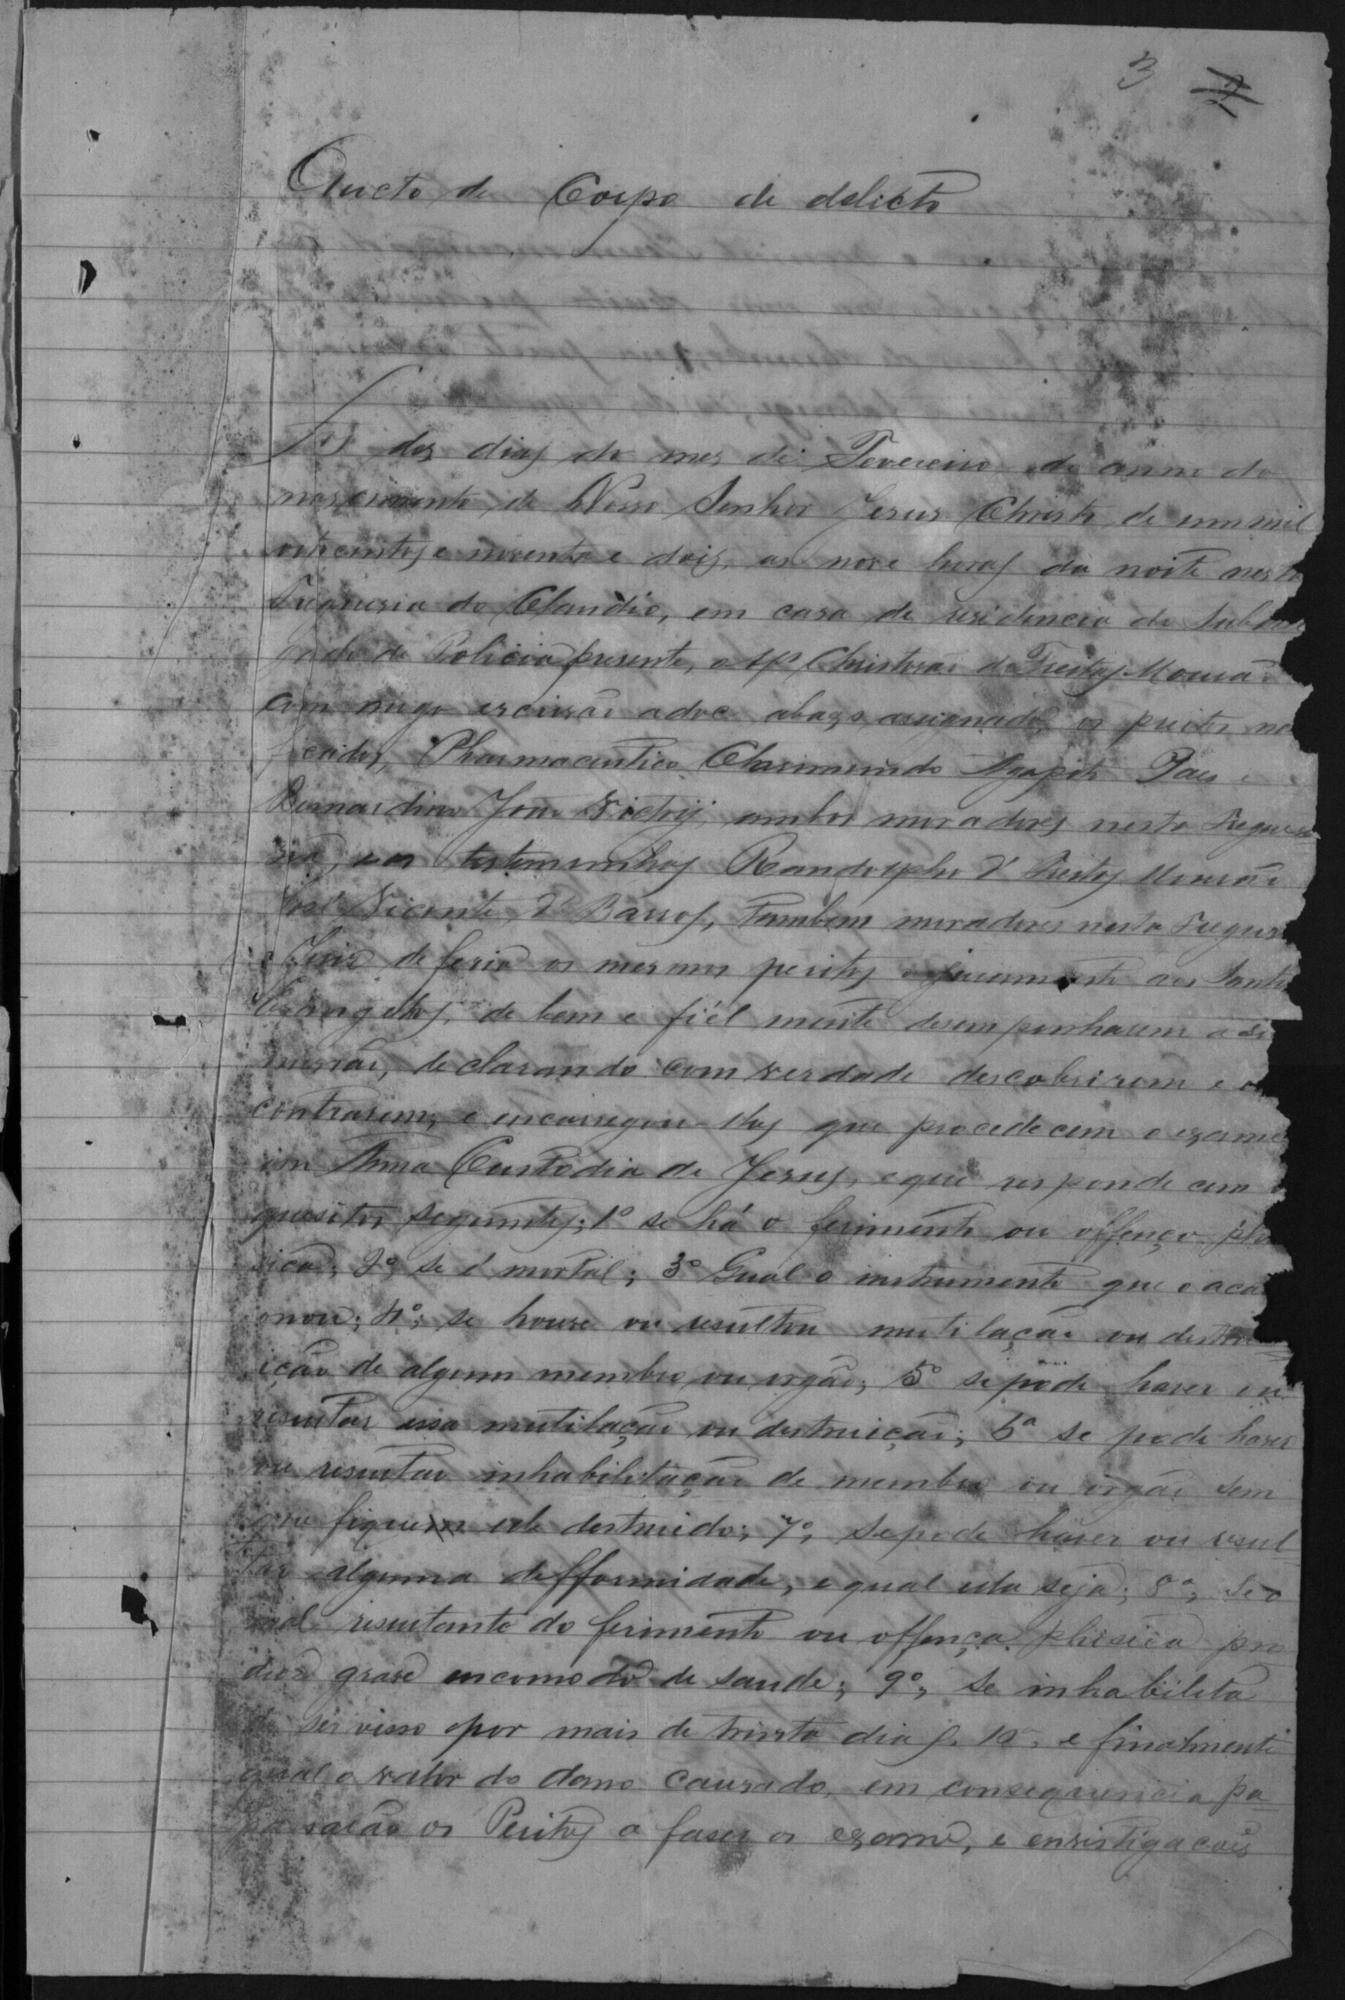 3 2
Aucto de Corpo de delicto
dez dias do mez de Fevereiro do anno do
nascimento de Nosso Senhor Jesus Christo de um mil
oitocentos e noventa e dois, as nove horas da noite nesta
Freguesia do Claudio, em casa de residencia do Subdele
gado de Policia presente, o Christovão de Freitas Mourão
com migo escrivão adoc abaxo assignado, os peritos no
ficados, Pharmaceutico Clarimundo Agapito Paes e
Bernardino José Victoy, ambos moradores nesta Fregue
sia, e as testemunhas Randolpho d' Freitas Mourão
José Vicente d' Barros, tambem moradores nesta Fregue
o Juiz deferio os mesmos peritos o juramento aos Santos
Evangelhos, de bem e fiél mente desempenharem a su
missão, declarando com verdade descobrirem e en
contrarem, e encarregou-lhes que procedecem o exame
em Anna Custodia de Jesus, e que respondecem
quesitos seguintes; 1º se há o ferimento ou offença phi
sica; 2º, se é mortal; 3º Qual o instrumento que o aca
onou; 4º; se houve ou resultou mutilação ou destru
ição de algum membro ou orgão; 5º se póde haver ou
resultar essa mutilação ou destruição; 6ª se pode haver
ou resultar inhabilitação de membro ou orgão sem
que fique elle destruido; 7º, se pode haver ou resul-
tar alguma defformidade, e qual ella seja; 8º, se o
mal resultante do ferimento ou offença phisica pro
duz grave encomodo de saude; 9º, se inhabilita
do servisso por mais de trinta dias. 10º, e finalmente
qual o valor do dano causado, em consequencia pa-
os Peritos a fazer os exame, e envistigacois